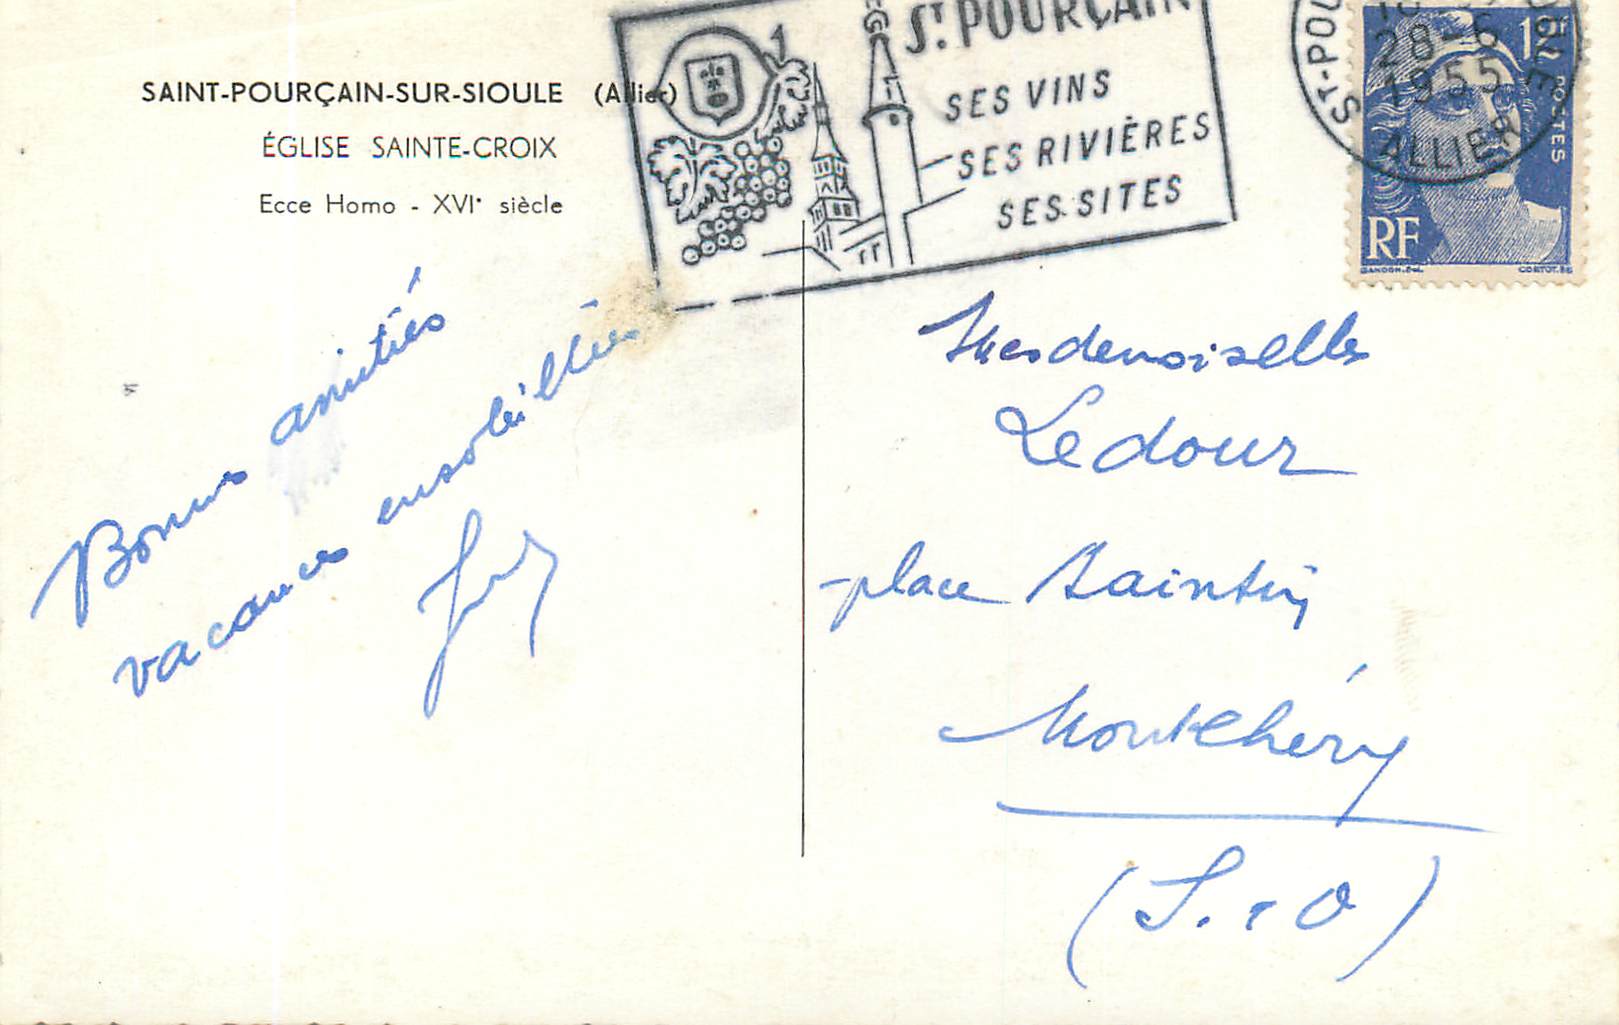 SAINT-POURÇAIN-SUR-SIOULE (Allier)
ÉGLISE SAINTE-CROIX
Ecce Homo - XVIe siècle
ST POURÇAIN
SES VINS
SES RIVIÈRES
SES SITES
28-6
1955
ST-POU
OULE
ALLIER
POSTES
RF
GANDON
CORTOT
Bonnes amitiés
vacances ensoleillées
Mesdemoiselles
Ledour
place
Montlhéry
(S. & O)